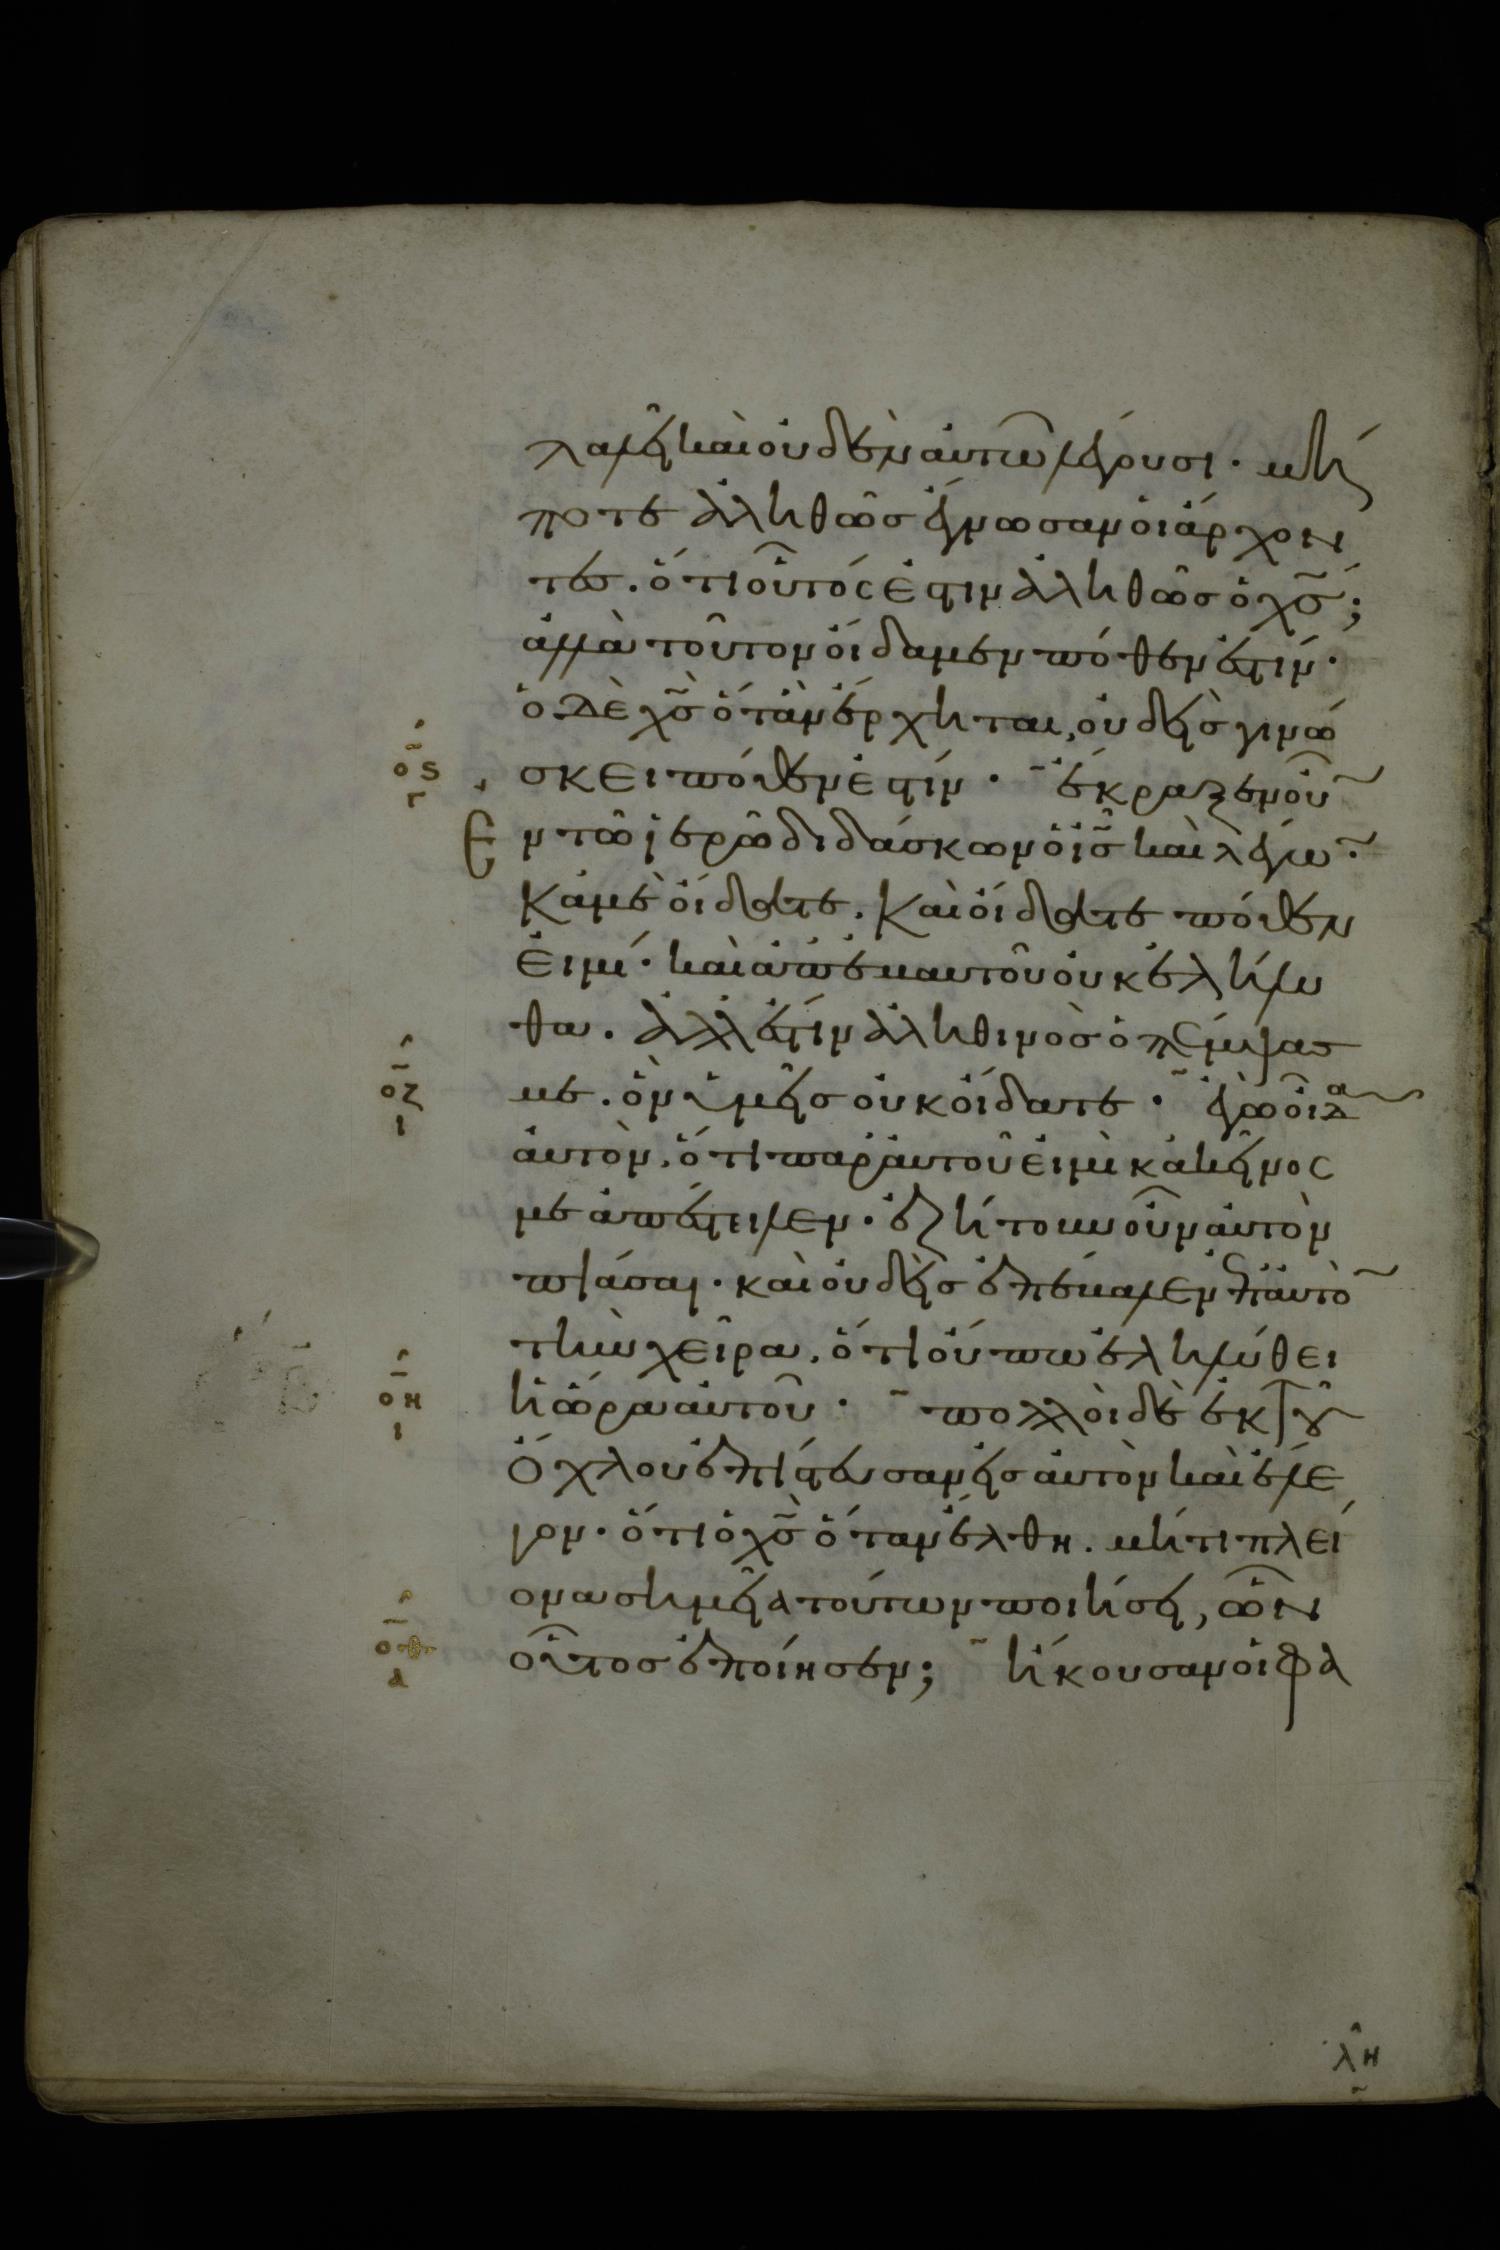 λαλεῖ καὶ οὐδὲν αὐτῶ λέγουσι· μή
ποτε ἀληθῶσ ἔγνωσαν οἱ ἄρχον
τεσ. ὅτι οὗτός ἐστιν ἀληθῶσ ὁ χ̅σ̅;
ἀλλὰ τοῦτον οἴδαμεν πόθεν ἐστίν·
ὁ δὲ χ̅σ̅ ὅτὰν ἔρχηται, οὐδεὶσ γινώ
οσ
γ
σκει πόθεν ἐστίν· ἔκραξεν οὖ̅
Ε
ν τῶ ἱερῶ διδάσκων ὁ ἰ̅σ̅ καὶ λέγω̅·
Κἀμὲ οἴδατε. Καὶ οἴδατε πόθεν
εἰμί· καὶ ἀπ' ἐμαυτοῦ οὐκ ἐλήλυ
θα. ἀλλ' ἔστιν ἀληθινὸσ ὁ πέμψασ
οζ
ι
με. ὃν ὑμεῖσ οὐκ οἴδατε· ἐγὼ οἶδα
αὐτὸν. ὅτι παρ' αὐτοῦ εἰμὶ κἀκεῖνος
με ἀπέστειλεν· ἐζήτουν οὖν αὐτὸν
πιάσαι· καὶ οὐδεὶσ ἐπέβαλεν ἐπ' αὐτὸ̅
τὴν χεῖρα. ὅτι οὔπω ἐληλύθει
οη
ι
ἡ ὥρα αὐτοῦ· πολλοὶ δὲ ἐκ τοῦ
ὄχλου ἐπίστευσαν εἰσ αὐτὸν καὶ ἔλε
γον· ὅτι ὁ χ̅σ̅ ὅταν ἔλθη. μήτι πλεί
ονα σημεῖα τούτων ποιήσει, ὧν
οθ
α
οὗτοσ ἐποίησεν; ἤκουσαν οἱ φα
λη